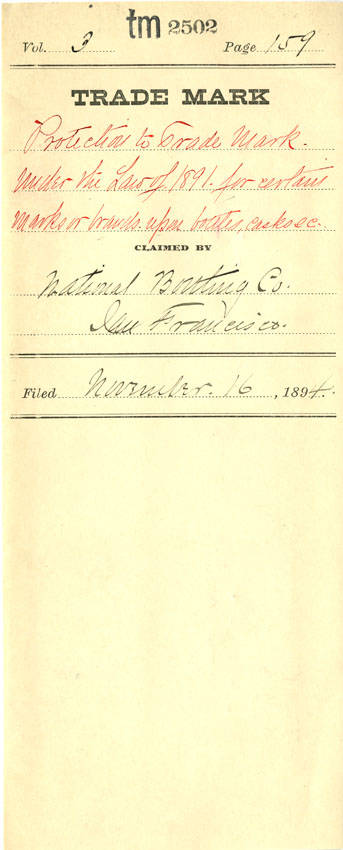 tm 2502
Vol. 3 Page 159
TRADE MARK
Protection to Trade Mark.
Under the Law of 1891. for certain
marks or brands upon bottles casks &c.
CLAIMED BY
National Bottling Co.
San Francisco.
Filed November 16, 1894.